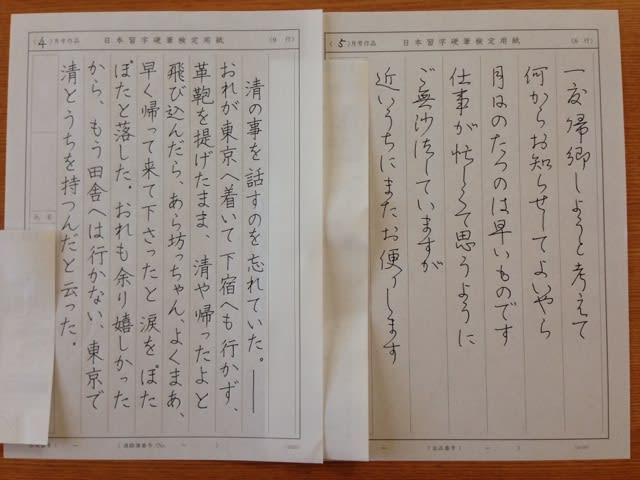 (4)月号作品 日本習字硬筆検定用紙 (9 行)
清の事を話すのを忘れていた。――
おれが東京へ着いて下宿へも行かず、
革鞄を提げたまま、清や帰ったよと
飛び込んだら、あら坊っちゃん、よくまあ、
早く帰って来て下さったと涙をぽた
ぽたと落した。おれも余り嬉しかった
から、もう田舎へは行かない、東京で
清とうちを持つんだと云った。
氏名
(5)月号作品 日本習字硬筆検定用紙 (6 行)
一度帰郷しようと考えて
何からお知らせしてよいやら
月日のたつのは早いものです
仕事が忙しくて思うように
ご無沙汰していますが
近いうちにまたお便りします